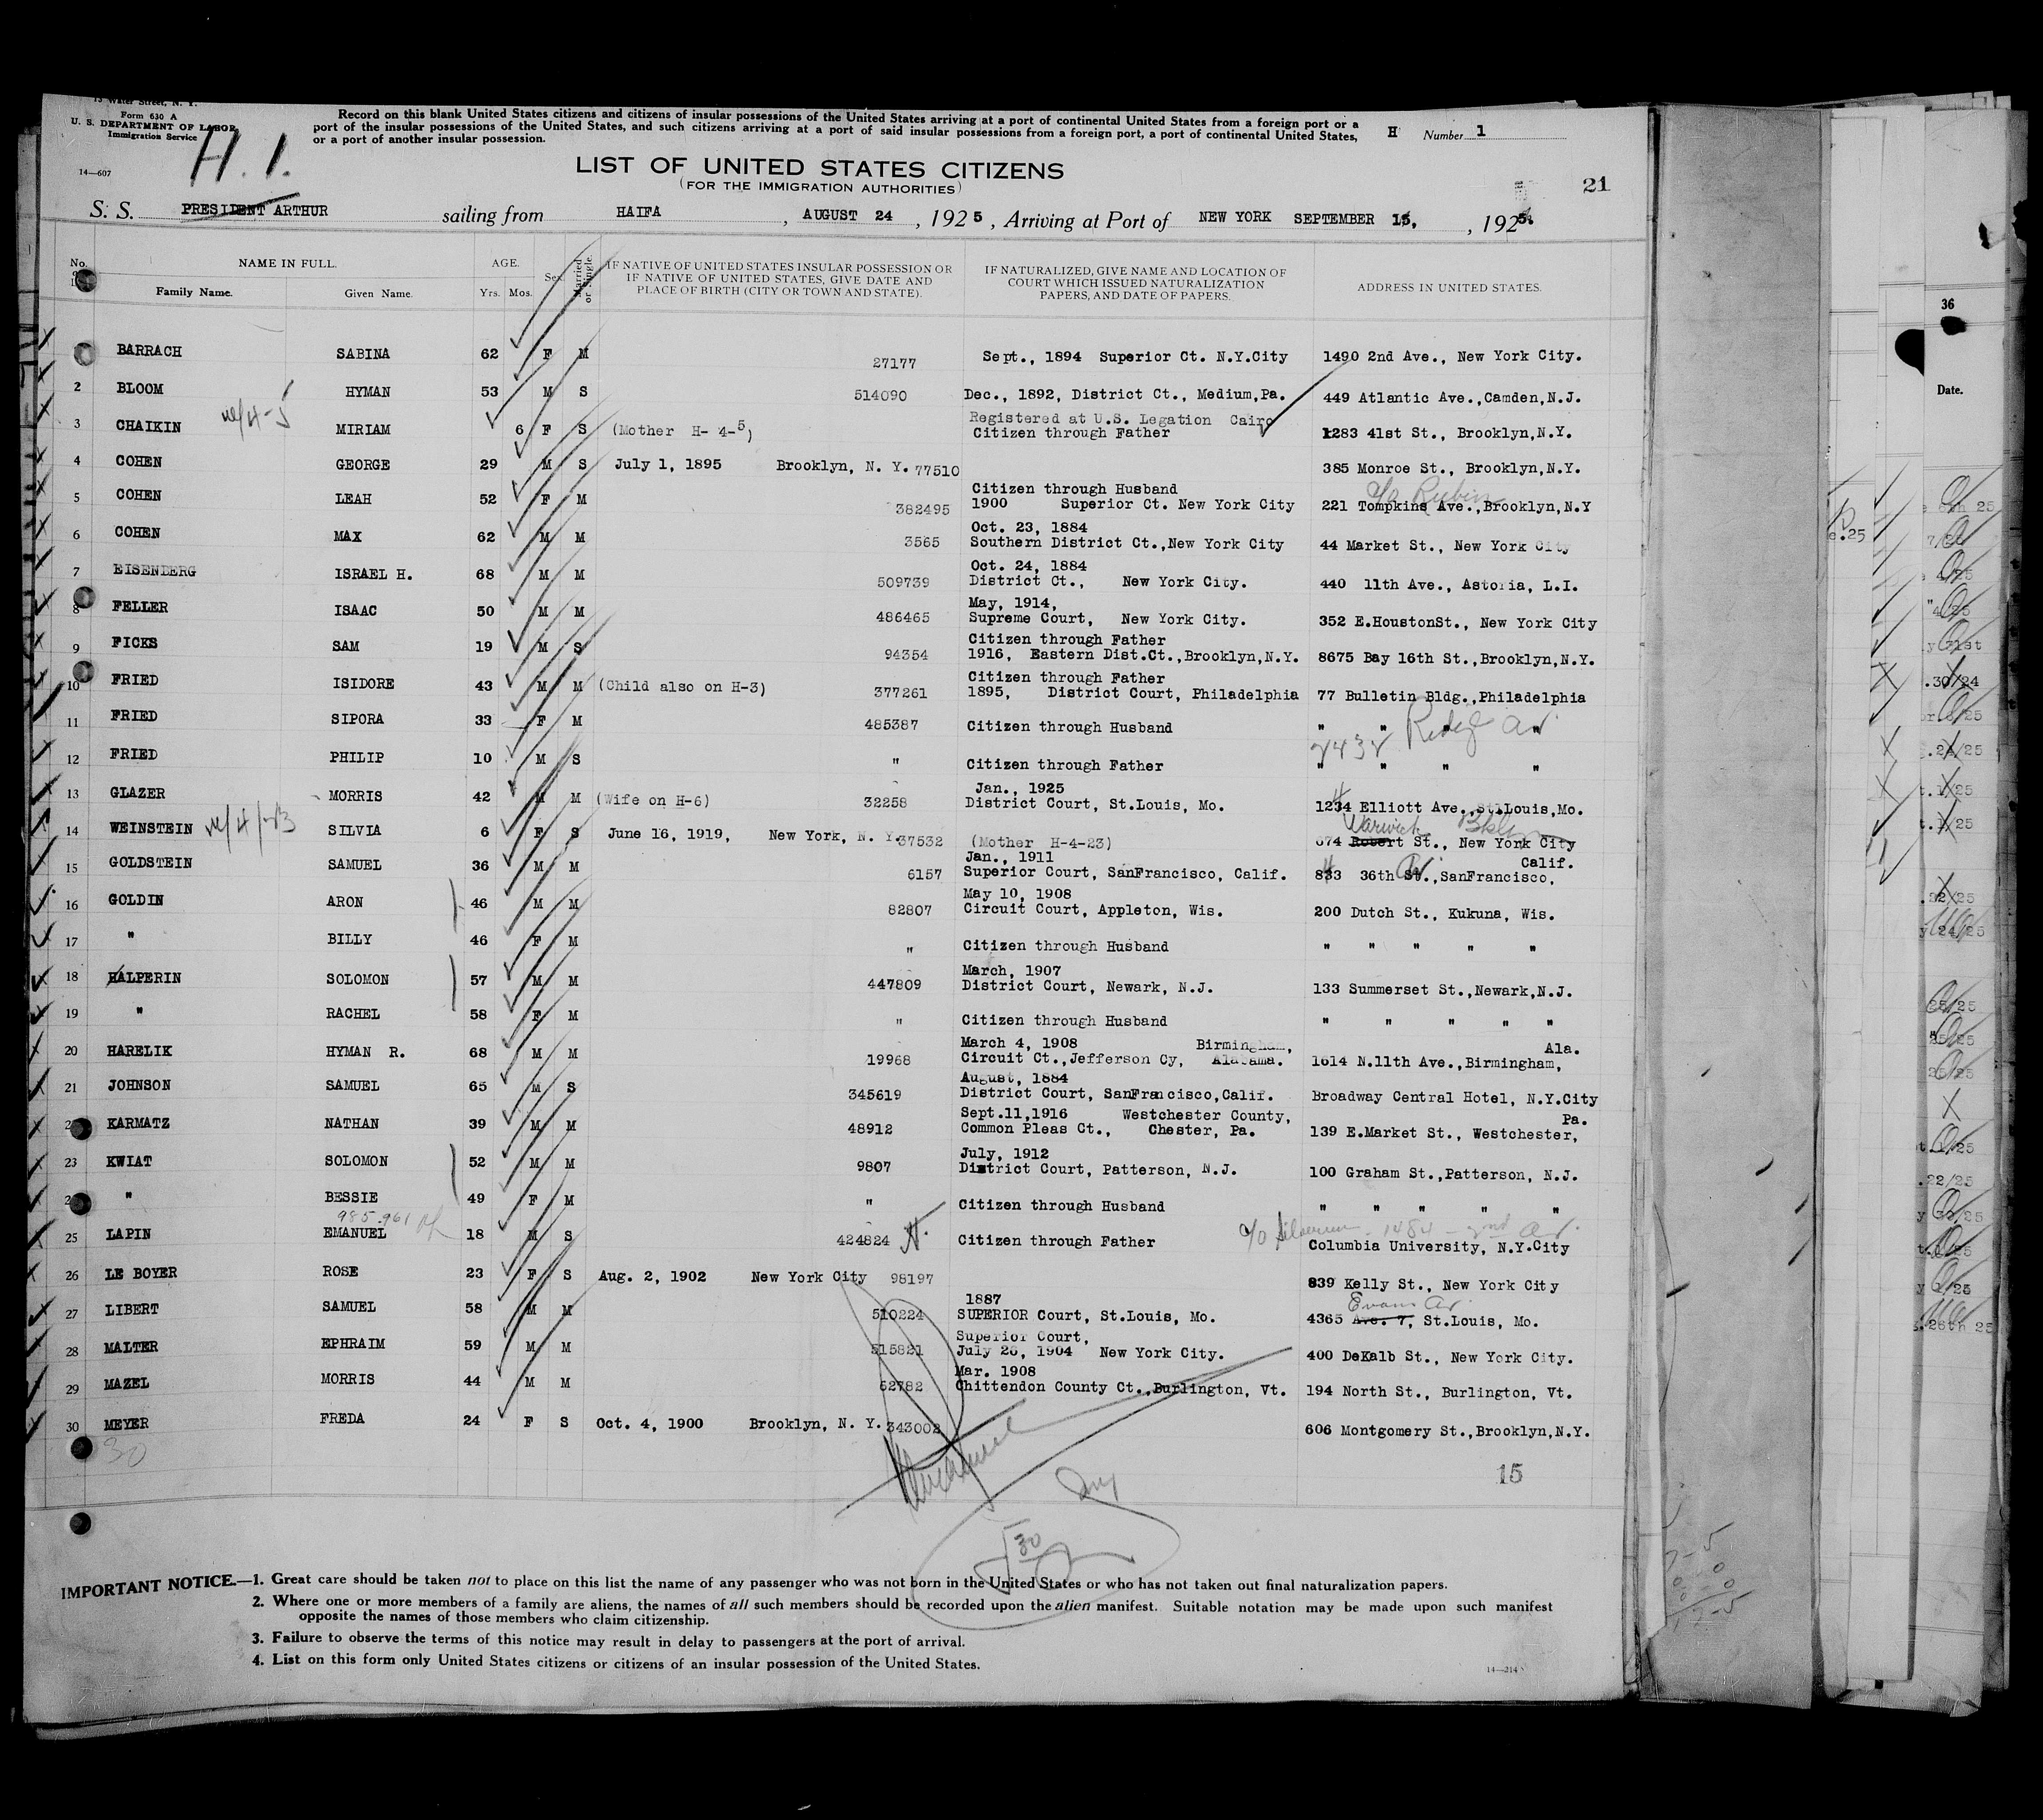 13 Water Street, N. Y.
Form 630 A
U. S. DEPARTMENT OF LABOR
Immigration Service
14—607
H. 1.
Record on this blank United States citizens and citizens of insular possessions of the United States arriving at a port of continental United States from a foreign port or a
port of the insular possessions of the United States, and such citizens arriving at a port of said insular possessions from a foreign port, a port of continental United States,
or a port of another insular possession.
H Number 1
LIST OF UNITED STATES CITIZENS
(FOR THE IMMIGRATION AUTHORITIES)
21
S. S. PRESIDENT ARTHUR sailing from HAIFA, AUGUST 24, 1925, Arriving at Port of NEW YORK SEPTEMBER 15, 1925.
No. NAME IN FULL. AGE. Sex Married or Single. IF NATIVE OF UNITED STATES INSULAR POSSESSION OR IF NATIVE OF UNITED STATES, GIVE DATE AND PLACE OF BIRTH (CITY OR TOWN AND STATE). IF NATURALIZED, GIVE NAME AND LOCATION OF COURT WHICH ISSUED NATURALIZATION PAPERS, AND DATE OF PAPERS. ADDRESS IN UNITED STATES.
Family Name. Given Name. Yrs. Mos.
BARRACH SABINA 62 F M 27177 Sept., 1894 Superior Ct. N.Y.City 1490 2nd Ave., New York City.
2 BLOOM HYMAN 53 M S 514090 Dec., 1892, District Ct., Medium,Pa. 449 Atlantic Ave.,Camden,N.J.
Registered at U.S. Legation Cairo
3 CHAIKIN MIRIAM 6 F S (Mother H- 4-5) Citizen through Father 1283 41st St., Brooklyn,N.Y.
4 COHEN GEORGE 29 M S July 1, 1895 Brooklyn, N. Y. 77510 385 Monroe St., Brooklyn,N.Y.
Citizen through Husband c/o Rubin
5 COHEN LEAH 52 F M 382495 1900 Superior Ct. New York City 221 Tompkins Ave.,Brooklyn,N.Y
Oct. 23, 1884
6 COHEN MAX 62 M M 3565 Southern District Ct.,New York City 44 Market St., New York City
Oct. 24, 1884
7 EISENBERG ISRAEL H. 68 M M 509739 District Ct., New York City. 440 11th Ave., Astoria, L.I.
May, 1914,
8 FELLER ISAAC 50 M M 486465 Supreme Court, New York City. 352 E.HoustonSt., New York City
Citizen through Father
9 FICKS SAM 19 M S 94354 1916, Eastern Dist.Ct.,Brooklyn,N.Y. 8675 Bay 16th St.,Brooklyn,N.Y.
Citizen through Father
10 FRIED ISIDORE 43 M M (Child also on H-3) 377261 1895, District Court, Philadelphia 77 Bulletin Bldg.,Philadelphia
11 FRIED SIPORA 33 F M 485387 Citizen through Husband " " " "
2432 Ridge Av.
12 FRIED PHILIP 10 M S " Citizen through Father " " " "
Jan., 1925
13 GLAZER MORRIS 42 M M (Wife on H-6) 32258 District Court, St.Louis, Mo. 1234 Elliott Ave.,St.Louis,Mo.
Warwick Bklyn
14 WEINSTEIN SILVIA 6 F S June 16, 1919, New York, N. Y. 37532 (Mother H-4-23) 674 Robert St., New York City
Jan., 1911 Calif.
15 GOLDSTEIN SAMUEL 36 M M 6157 Superior Court, SanFrancisco, Calif. 833 36th St.,SanFrancisco,
May 10, 1908
16 GOLDIN ARON 46 M M 82807 Circuit Court, Appleton, Wis. 200 Dutch St., Kukuna, Wis.
17 " BILLY 46 F M " Citizen through Husband " " " " "
March, 1907
18 HALPERIN SOLOMON 57 M M 447809 District Court, Newark, N.J. 133 Summerset St.,Newark,N.J.
19 " RACHEL 58 F M " Citizen through Husband " " " " "
March 4, 1908 Birmingham, Ala.
20 HARELIK HYMAN R. 68 M M 19968 Circuit Ct.,Jefferson Cy, Alabama. 1614 N.11th Ave.,Birmingham,
August, 1884
21 JOHNSON SAMUEL 65 M S 345619 District Court, SanFrancisco,Calif. Broadway Central Hotel, N.Y.City
Sept.11,1916 Westchester County, Pa.
KARMATZ NATHAN 39 M M 48912 Common Pleas Ct., Chester, Pa. 139 E.Market St., Westchester,
July, 1912
23 KWIAT SOLOMON 52 M M 9807 District Court, Patterson, N.J. 100 Graham St.,Patterson, N.J.
" BESSIE 49 F M " Citizen through Husband " " " " "
985.961 c/o 1484 - 2nd Av.
25 LAPIN EMANUEL 18 M S 424824 Citizen through Father Columbia University, N.Y.City
26 LE BOYER ROSE 23 F S Aug. 2, 1902 New York City 98197 839 Kelly St., New York City
1887 Evans Av.
27 LIBERT SAMUEL 58 M M 510224 SUPERIOR Court, St.Louis, Mo. 4365 Ave. 7, St.Louis, Mo.
Superior Court,
28 MALTER EPHRAIM 59 M M 515821 July 26, 1904 New York City. 400 DeKalb St., New York City.
Mar. 1908
29 MAZEL MORRIS 44 M M 52782 Chittendon County Ct.,Burlington, Vt. 194 North St., Burlington, Vt.
30 MEYER FREDA 24 F S Oct. 4, 1900 Brooklyn, N. Y. 343002 606 Montgomery St.,Brooklyn,N.Y.
30
15
30
IMPORTANT NOTICE.—1. Great care should be taken not to place on this list the name of any passenger who was not born in the United States or who has not taken out final naturalization papers.
2. Where one or more members of a family are aliens, the names of all such members should be recorded upon the alien manifest. Suitable notation may be made upon such manifest
opposite the names of those members who claim citizenship.
3. Failure to observe the terms of this notice may result in delay to passengers at the port of arrival.
4. List on this form only United States citizens or citizens of an insular possession of the United States.
14—214
36
Date.